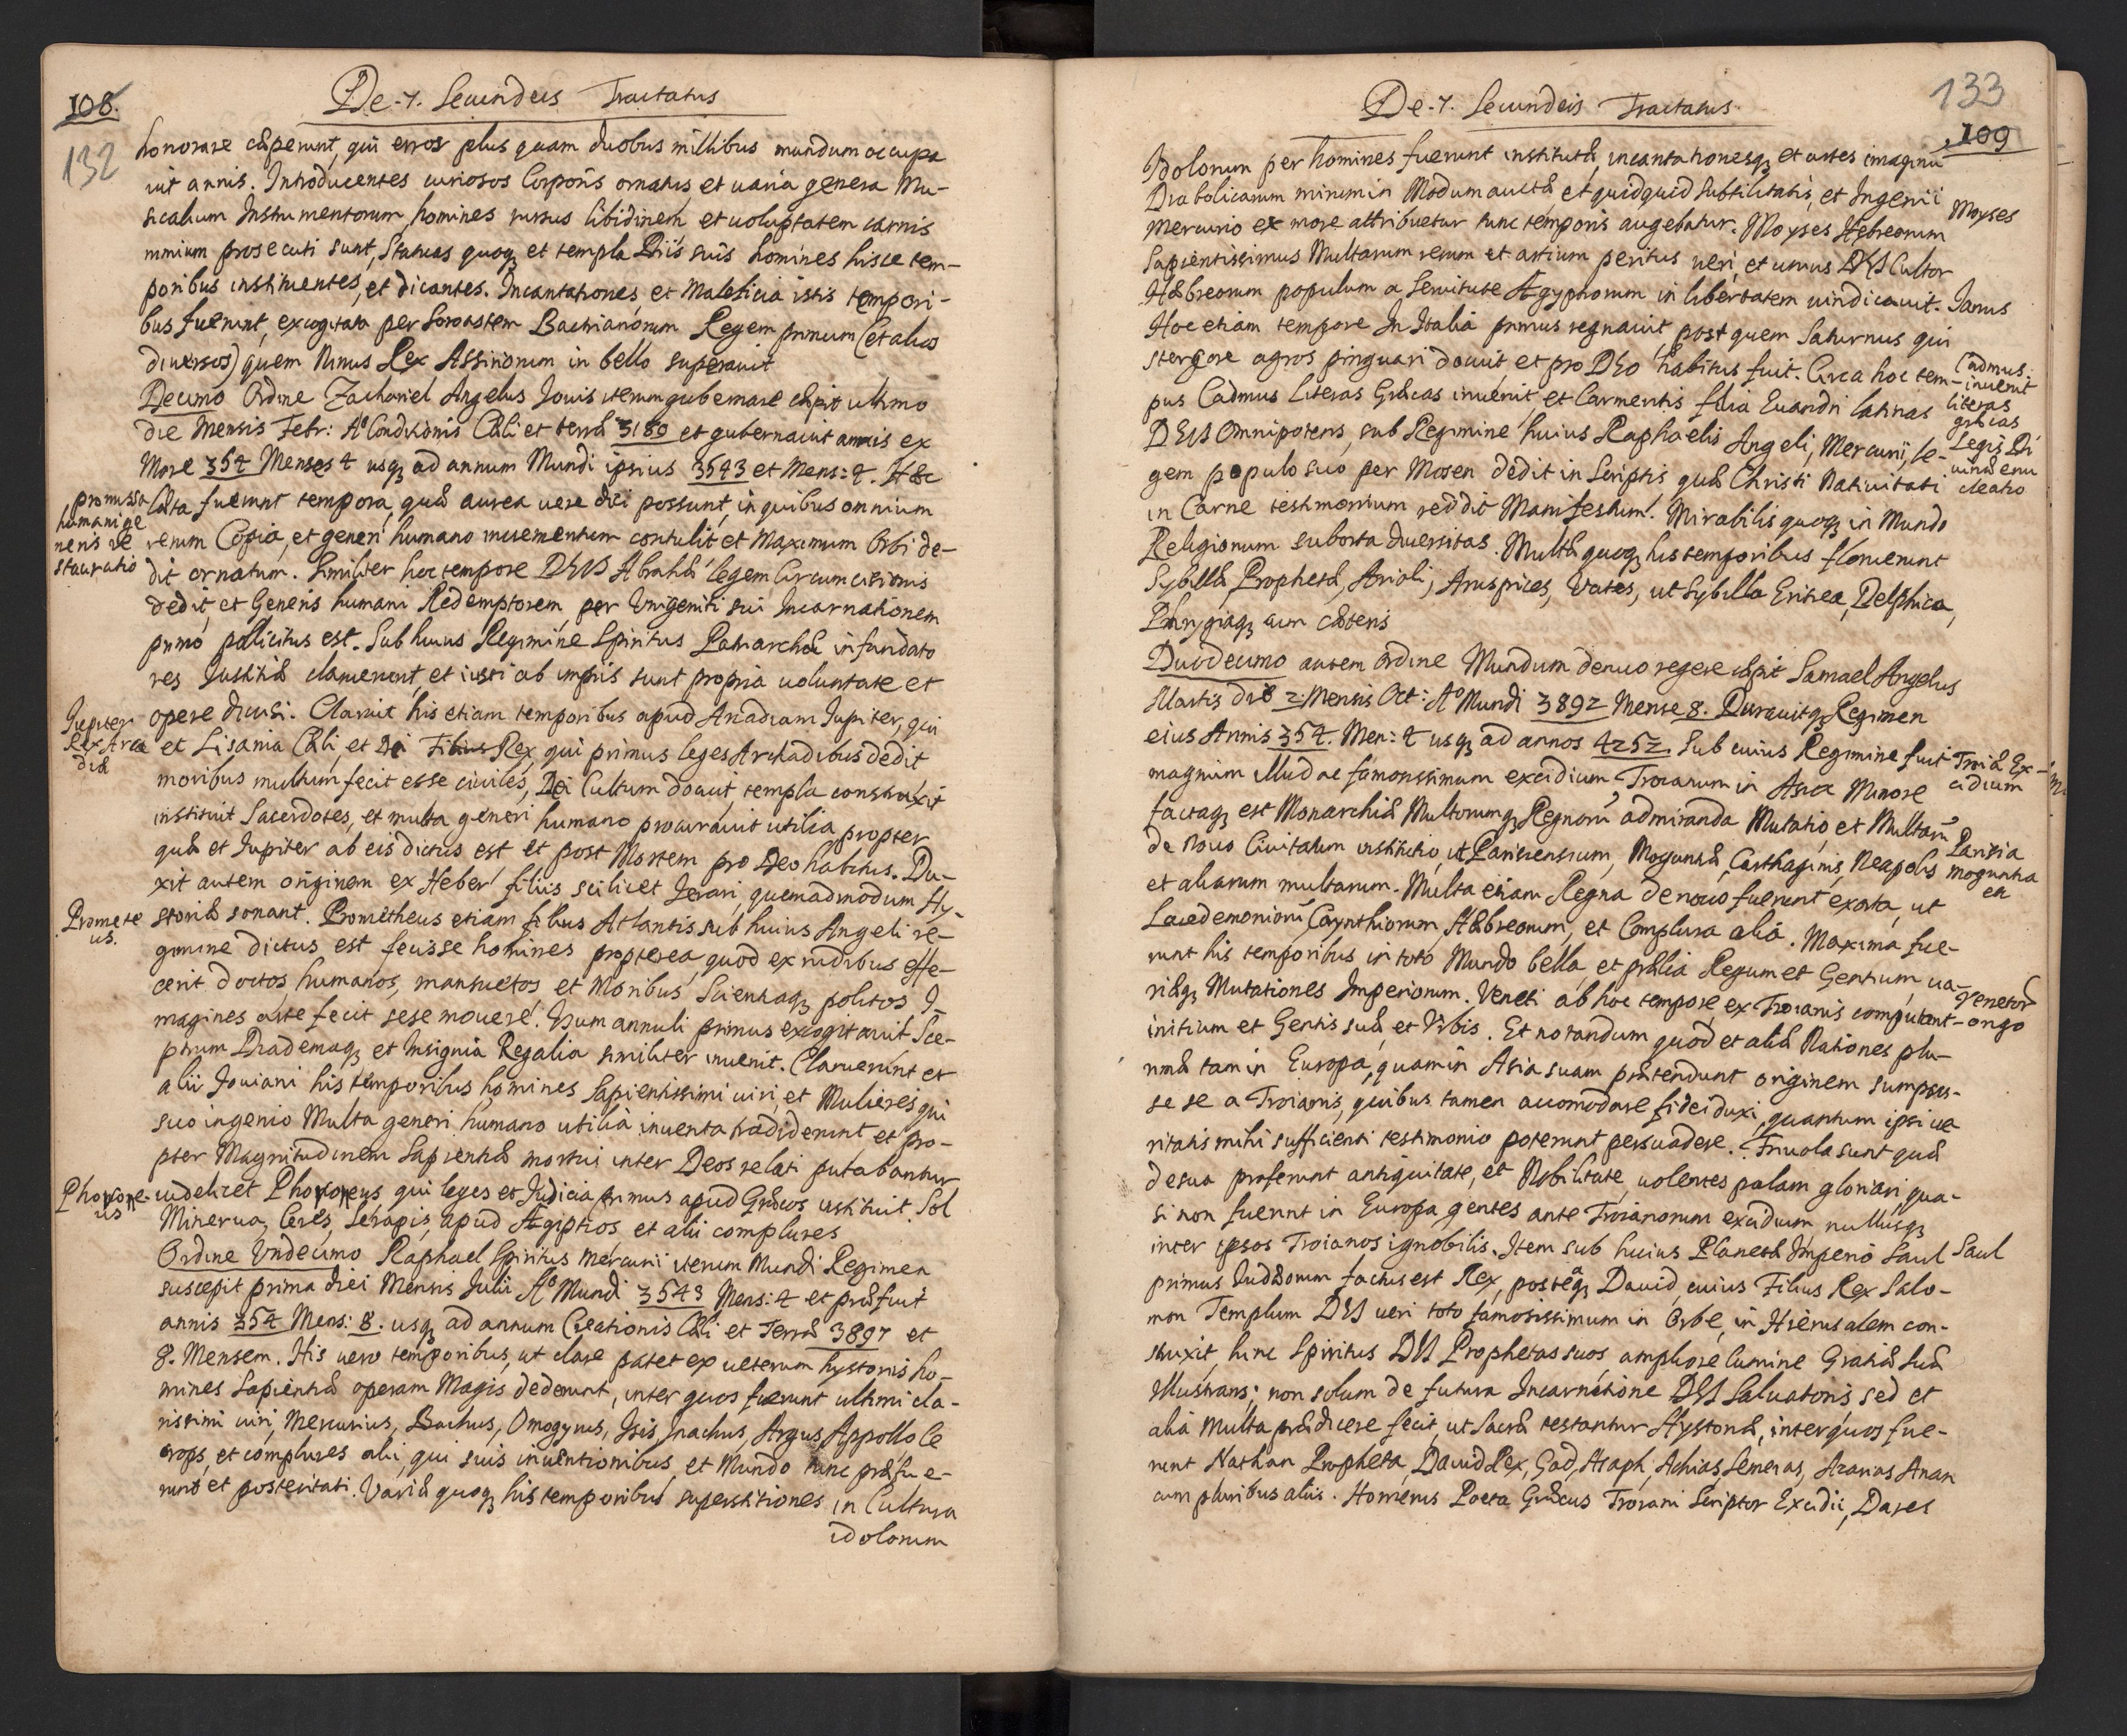 108.
132
De .7. Secundeis Tractatus
honorare cæperunt, qui error plus quam duobus millibus mundum occupa
uit annis. Introducentes curiosos Corporis ornatus et uaria genera Mu-
sicalium Instrumentorum, homines rursus libidinem et uoluptatem carnis
nimium prosecuti sunt, Statuas quoq3 et templa Diis suis homines hisce tem-
poribus instituentes, et dicantes. Incantationes et Maleficia istis tempori-
bus fuerunt excogitata per Soroastem Bactrianorum Regem primum (et alios
diuersos) quem Ninus Rex Assiriorum in bello superauit
Decimo Ordine Zachariel Angelus Jouis iterum gubernare cæpit ultimo
die Mensis Febr: Aº Conditionis Cæli et terræ 3189 et gubernauit annis ex
More 354 Menses 4 usq3 ad annum Mundi ipsius 3543 et Mens: 4. Hæc
promissa
humani ge
neris re
stauratio
læta fuerunt tempora, quæ aurea uere dici possunt, in quibus omnium
rerum Copia, et generi humano incrementum contulit et Maximum Orbi de-
dit ornatum. Similiter hoc tempore DEUS Abrahæ legem Circumcisionis
dedit, et Generis humani Redemptorem, per Unigeniti sui Incarnationem
primo pollicitus est. Sub huius Regimine Spiritus Patriarchæ in fundato
res Justitiæ claruerunt, et iusti ab impiis sunt propria uoluntate et
opere diuisi. Claruit his etiam temporibus apud Arcadiam Jupiter, qui
Jupiter
Rex Arca
diæ
et Lisania Cæli, et Dei Filius Rex, qui primus leges Archadibus dedit
moribus multum fecit esse ciuiles, Dei Cultum docuit, templa construxit
instituit Sacerdotes, et multa generi humano procurauit utilia propter
quæ et Jupiter ab eis dictus est et post Mortem pro Deo habitus. Du-
xit autem originem ex Heber filiis scilicet Jerari, quemadmodum Hy-
Promete
us.
storiæ sonant. Prometheus etiam filius Atlantis sub huius Angeli re-
gimine dictus est fecisse homines propterea, quod ex rudibus effe-
cerit doctos, humanos, mansuetos et Moribus Scientiaq3 politos I-
magines arte fecit sese mouere. Usum annuli primus excogitauit Sce-
ptrum Diademaq3 et Insignia Regalia similiter inuenit. Claruerunt et
alii Jouiani his temporibus homines Sapientissimi uiri, et Mulieres qui
suo ingenio Multa generi humano utilia inuenta tradiderunt et pro-
pter Magnitudinem Sapientiæ mortui inter Deos relati putabantur
Phorone-
us
uidelicet Phoroneus qui leges et Judicia primus apud Græcos instituit. Sol
Minerua, Ceres, Serapis, apud Ægiptios, et alii complures
Ordine Undecimo Raphael Spiritus Mercurii iterum Mundi Regimen
suscepit prima diei Mensis Julii Aº Mundi 3543 Mens: 4 et præfuit
annis 354 Mens: 8. usq3 ad annum Creationis Cæli et Terræ 3897 et
8. Mensem. His uero temporibus, ut clare patet ex ueterum hystoriis ho-
mines Sapientiæ operam Magis dederunt, inter quos fuerunt ultimi cla-
rissimi uiri, Mercurius, Bachus, Omogyrus, Isis, Inachus, Argus, Appollo Ce
crops, et complures alii, qui suis inuentionibus, et Mundo tunc præfue-
runt et posteritati. Variæ quoq3 his temporibus superstitiones in Cultura
idolorum
De .7. Secundeis Tractatus.
133
109
Idolorum per homines fuerunt institutæ, incantationesq3 et artes imaginū
Diabolicarum mirum in Modum auctæ, et quidquid Subtilitatis, et Ingenii
Mercurio ex more attribuetur tunc temporis augebatur. Moyses Hebreorum
Moyses
Sapientissimus Multarum rerum et artium peritus ueri, et unius DEI Cultor
Hæbreorum populum a Seruitute Ægyptiorum in libertatem uindicauit.
Janus
Hoc etiam tempore In Italia primus regnauit, post quem Saturnus qui
stercore agros pinguari docuit, et pro DEO habitus fuit. Circa hoc tem-
Cadmus.
inuenit
literas
græcas
pus Cadmus Literas Græcas inuenit, et Carmentis filia Euandri latinas
DEUS Omnipotens, sub Regimine huius Raphaelis Angeli, Mercurii, le-
Legis Di
uinæ enu
cleatio
gem populo suo per Mosen dedit in Scriptis quæ Christi Natiuitati
in Carne testimonium reddit Manifestum. Mirabilis quoq3 in Mundo
Religionum suborta diuersitas. Multæ quoq3 his temporibus floruerunt
Sybillæ, Prophetæ, Arioli, Aruspices, Vates, ut Sybilla Eritrea, Delphica,
Phrygiaq3 cum cæteris
Duodecimo autem ordine Mundum denuo regere cæpit Samael Angelus
Martis die 2. Mensis Oct: Aº Mundi 3892 Mense 8. Durauitq3 Regimen
eius Annis 354. Men: 4 usq3 ad annos 4252. Sub cuius Regimine fuit
Troiæ Ex-
cidium
magnum illud ac famosissimum excidium Troianum in Asia Minore
factaq3 est Monarchiæ Multorumq3 Regnorū admiranda Mutatio, et Multarū
de Nouo Ciuitatum institutio, ut Parisiensium, Moguntiæ, Carthaginis, Neapolis
Parisia
moguntia
en
et aliarum multarum. Multa etiam Regna de nouo fuerunt exorta, ut
Lacedemoniorū Corynthiorum Hæbreorum, et Complura alia. Maxima fue-
runt his temporibus in toto Mundo bella, et prælia Regum et Gentium, ua-
riæq3 Mutationes Imperiorum. Veneti ab hoc tempore ex Troianis computant
Venetorū
origo
initium et Gentis suæ, et Urbis. Et notandum quod et aliæ Nationes plu-
rimæ tam in Europa, quam in Asia suam prætendunt originem sumpsis-
se se a Troianis, quibus tamen accomodare fidei duxi, quantum ipsi ue
ritatis mihi sufficienti testimonio poterunt persuadere. Friuola sunt quæ
de sua proferunt antiquitate, et Nobilitate, uolentes palam gloriari, qua-
si non fuerint in Europa gentes ante Troianorum excidium, nullusq3
inter ipsos Troianos ignobilis. Item sub huius Planetæ Imperio Saul
Saul
primus Judæorum factus est Rex, posteaq3 David, cuius Filius Rex Salo-
mon Templum DEI ueri toto famosissimum in Orbe, in Hierusalem con-
struxit, hinc Spiritus DEI Prophetas suos ampliore lumine Gratiæ suæ
Illustrans; non solum de futura Incarnatione DEI Saluatoris sed et
alia Multa prædicere fecit, ut Sacræ testantur Hystoriæ, inter quos fue-
runt Nathan Propheta, David Rex, Gad, Asaph, Achias, Semeias, Azarias Anan
cum pluribus aliis. Homerus Poeta Græcus Troiani Scriptor Excidii, Dares